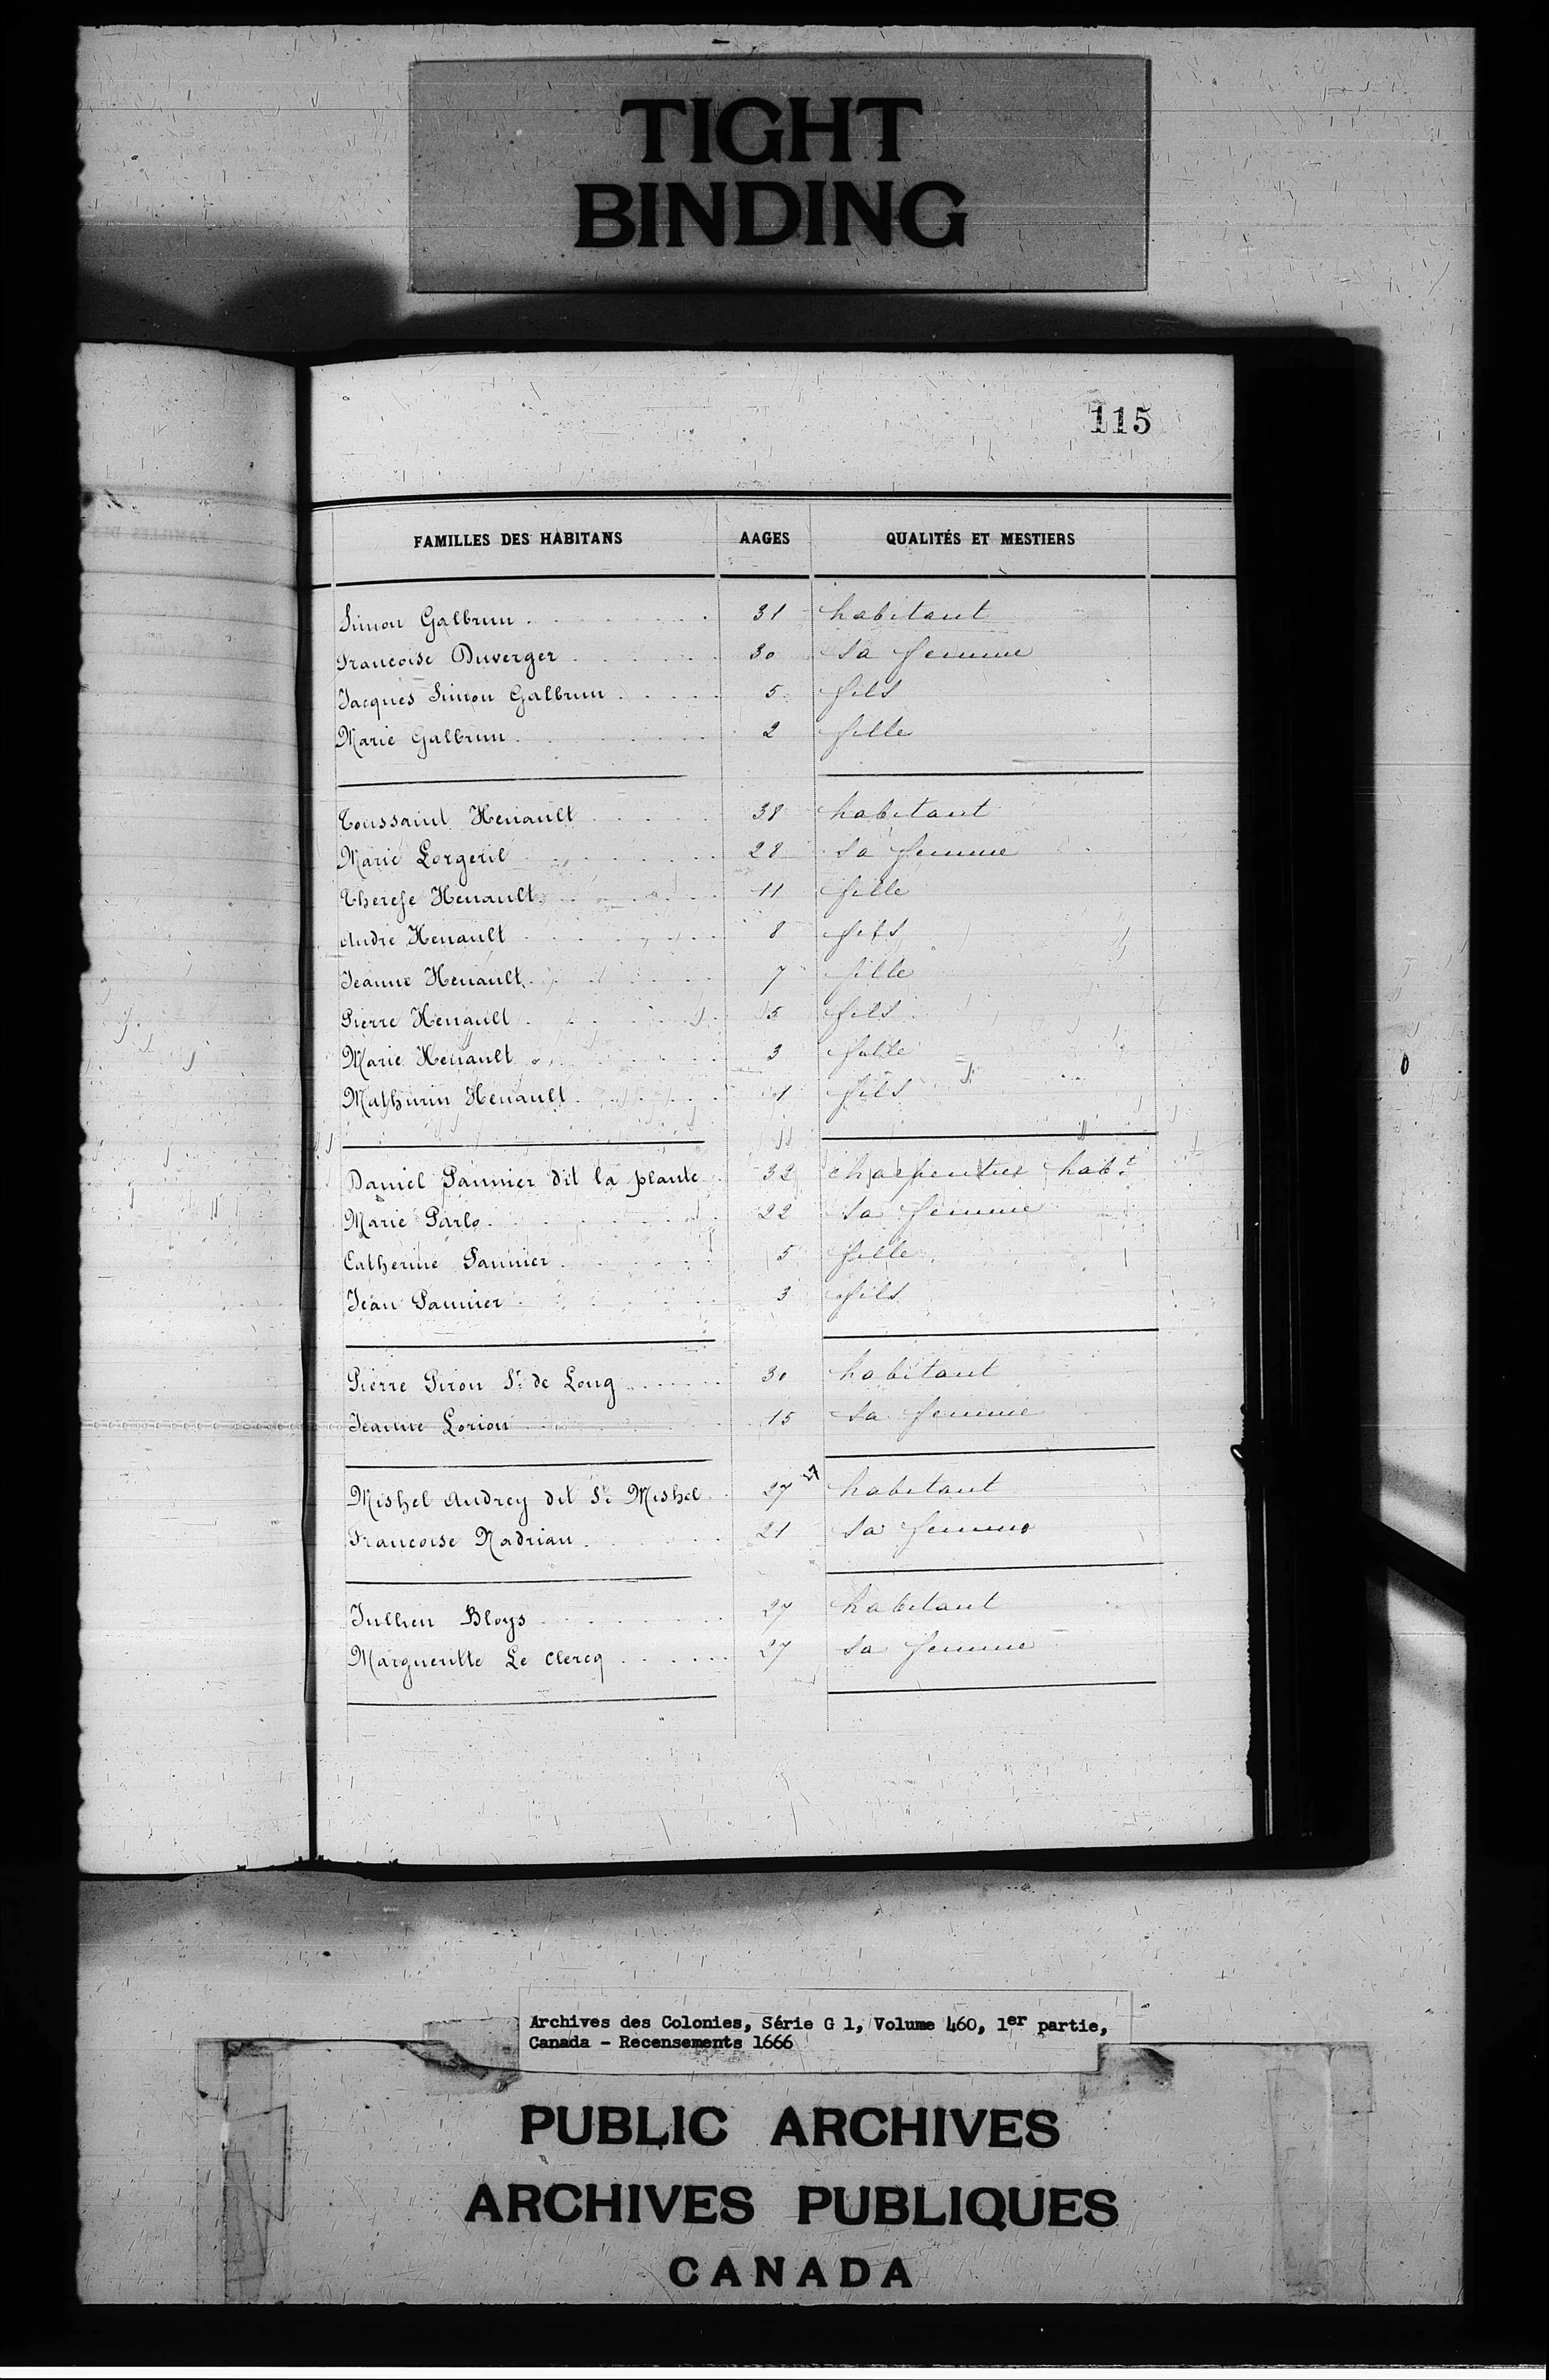 TIGHT
BINDING
115
FAMILLES DES HABITANS AAGES QUALITÉS ET MESTIERS
Simon Galbrun 31 habitant
Francoise Duverger 30 sa femme
Jacques Simon Galbrun 5 fils
Marie Galbrun 2 fille
Toussaint Henault 38 habitant
Marie Lorgeril 28 sa femme
Therese Henault 11 fille
Andre Henault 8 fils
Jeanne Henault 7 fille
Pierre Henault 5 fils
Marie Henault 3 fille
Mathurin Henault 1 fils
Daniel Pannier dit la plante 32 charpentier habt
Marie Parlo 22 sa femme
Catherine Pannier 5 fille
Jean Pannier 3 fils
Pierre Piron Sr de Long 30 habitant
Jeanne Lorion 15 sa femme
Mishel Audrey dit St Mishel 27 habitant
Francoise Nadrian 21 sa femme
Jullien Bloys 27 habitant
Margueritte Le Clercq 27 sa femme
Archives des Colonies, Série G 1, Volume 460, 1er partie,
Canada - Recensements 1666
PUBLIC ARCHIVES
ARCHIVES PUBLIQUES
CANADA